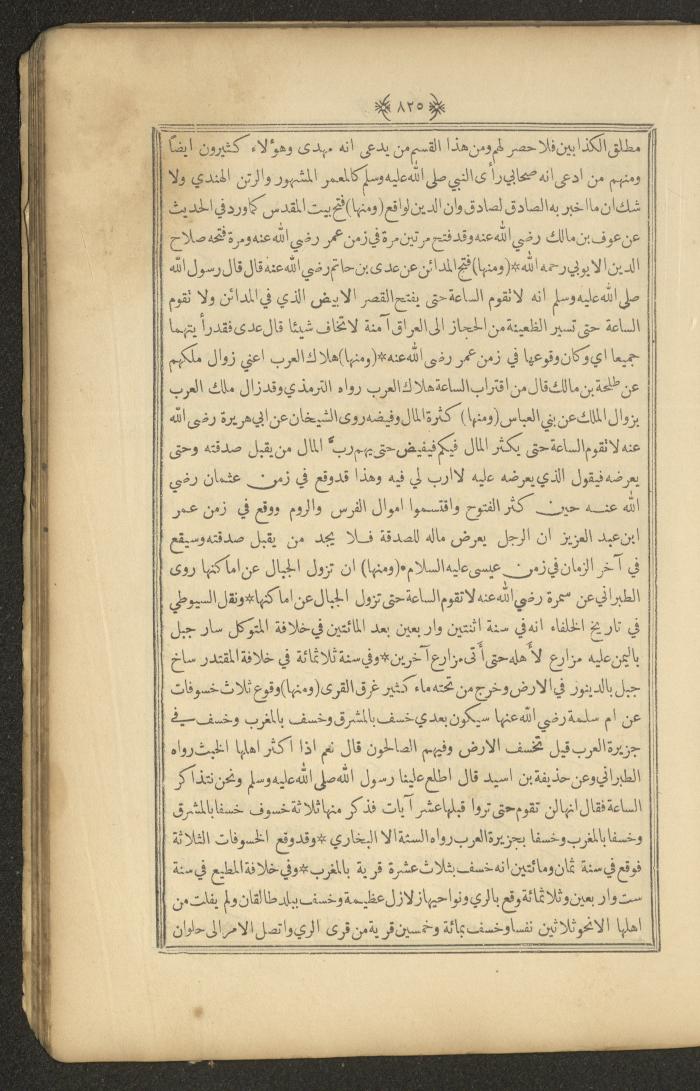 ﴿ ٨٢٥ ﴾
مطلق الكذابين فلا حصر لهم ومن هذا القسم من يدعى انه مهدى وهؤلاء كثيرون ايضاً
ومنهم من ادعى انه صحابي رأى النبي صلى الله عليه وسلم كالمعمر المشهور والرتن الهندي ولا
شك ان ما اخبر به الصادق لصادق وان الدين لواقع (ومنها) فتح بيت المقدس كما ورد في الحديث
عن عوف بن مالك رضي الله عنه وقد فتح مرتين مرة في زمن عمر رضي الله عنه ومرة فتحه صلاح
الدين الايوبي رحمه الله * (ومنها) فتح المدائن عن عدى بن حاتم رضي الله عنه قال قال رسول الله
صلى الله عليه وسلم انه لا تقوم الساعة حتى يفتح القصر الابيض الذي في المدائن ولا تقوم
الساعة حتى تسير الظعينة من الحجاز الى العراق آمنة لا تخاف شيئا قال عدى فقد رأيتهما
جميعا اي وكان وقوعها في زمن عمر رضى الله عنه * (ومنها) هلاك العرب اعني زوال ملكهم
عن طلحة بن مالك قال من اقتراب الساعة هلاك العرب رواه الترمذي وقد زال ملك العرب
بزوال الملك عن بني العباس (ومنها) كثرة المال وفيضه روى الشيخان عن ابي هريرة رضى الله
عنه لا تقوم الساعة حتى يكثر المال فيكم فيفيض حتى يهم رب المال من يقبل صدقته وحتى
يعرضه فيقول الذي يعرضه عليه لا ارب لي فيه وهذا قد وقع في زمن عثمان رضي
الله عنه حين كثر الفتوح واقتسموا اموال الفرس والروم ووقع في زمن عمر
ابن عبد العزيز ان الرجل يعرض ماله للصدقة فلا يجد من يقبل صدقته وسيقع
في آخر الزمان في زمن عيسى عليه السلام * (ومنها) ان تزول الجبال عن اماكنها روى
الطبراني عن سمرة رضي الله عنه لا تقوم الساعة حتى تزول الجبال عن اماكنها * ونقل السيوطي
في تاريخ الخلفاء انه في سنة اثنتين واربعين بعد المائتين في خلافة المتوكل سار جبل
باليمن عليه مزارع لأهله حتى أتى مزارع آخرين * وفي سنة ثلاثمائة في خلافة المقتدر ساخ
جبل بالدينور في الارض وخرج من تحته ماء كثير غرق القرى (ومنها) وقوع ثلاث خسوفات
عن ام سلمة رضي الله عنها سيكون بعدي خسف بالمشرق وخسف بالمغرب وخسف في
جزيرة العرب قيل تخسف الارض وفيهم الصالحون قال نعم اذا اكثر اهلها الخبث رواه
الطبراني وعن حذيفة بن اسيد قال اطلع علينا رسول الله صلى الله عليه وسلم ونحن نتذاكر
الساعة فقال انها لن تقوم حتى تروا قبلها عشر آيات فذكر منها ثلاثة خسوف خسفا بالمشرق
وخسفا بالمغرب وخسفا بجزيرة العرب رواه الستة الا البخاري * وقد وقع الخسوفات الثلاثة
فوقع في سنة ثمان ومائتين انه خسف بثلاث عشرة قرية بالمغرب * وفي خلافة المطيع في سنة
ست واربعين وثلاثمائة وقع بالري ونواحيها زلازل عظيمة وخسف ببلد طالقان ولم يفلت من
اهلها الا نحو ثلاثين نفسا وخسف بمائة وخمسين قرية من قرى الري واتصل الامر الى حلوان